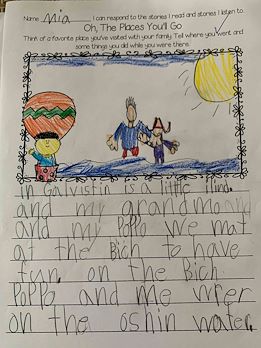 Name Mia I can respond to the stories I read and stories I listen to.
Oh, The Places You'll Go
Think of a favorite place you've visited with your family. Tell where you went and
some things you did while you were there.
in Galvistin is a little ilind.
and my grandmo and
and my Poppo we mat
at the Bich to have
fun. on the Bich
Poppo and me wrer
on the oshin water.